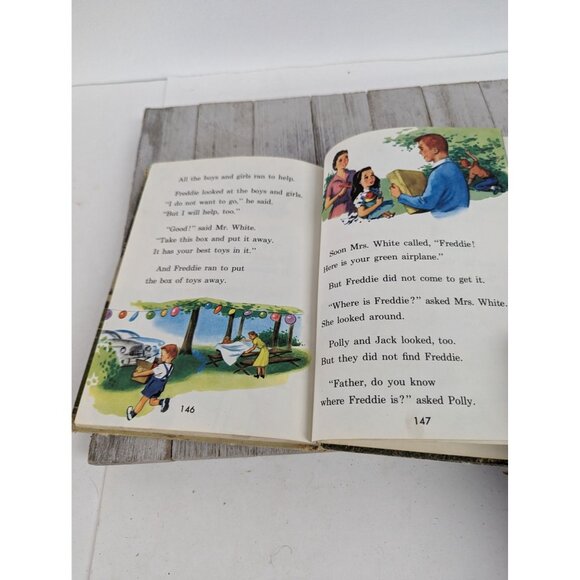 All the boys and girls ran to help.
Freddie looked at the boys and girls.
"I do not want to go," he said.
"But I will help, too."
"Good!" said Mr. White.
"Take this box and put it away.
It has your best toys in it."
And Freddie ran to put
the box of toys away.
146
Soon Mrs. White called, "Freddie!
Here is your green airplane."
But Freddie did not come to get it.
"Where is Freddie?" asked Mrs. White.
She looked around.
Polly and Jack looked, too.
But they did not find Freddie.
"Father, do you know
where Freddie is?" asked Polly.
147